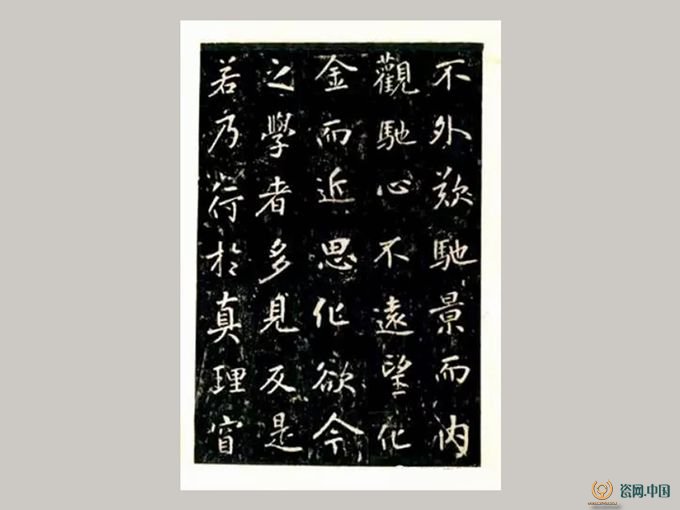 不外欻馳景而內
觀馳心不遠望化
金而近思化欲今
之學者多見反是
若乃荷於真理窅
瓷网.中国